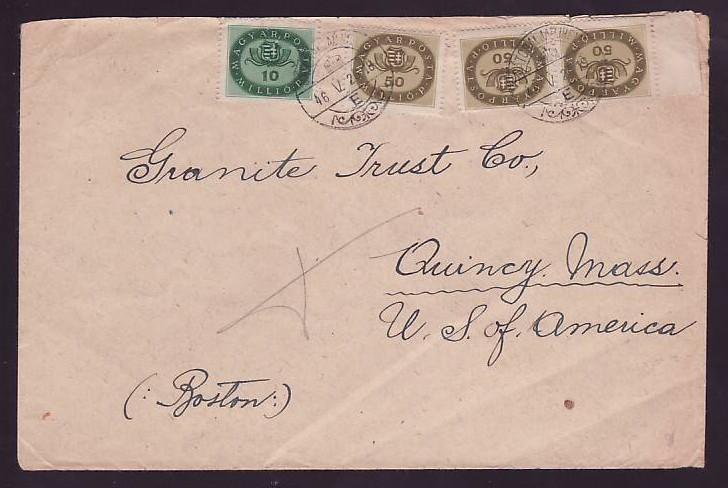 MAGYAR POSTA
10
MILLIÓ P
MAGYAR POSTA
50
MILLIÓ P
MAGYAR POSTA
50
MILLIÓ P
MAGYAR POSTA
50
MILLIÓ P
46 V. 2
Granite Trust Co.,
Quincy, Mass.
U. S. of. America
(: Boston:)